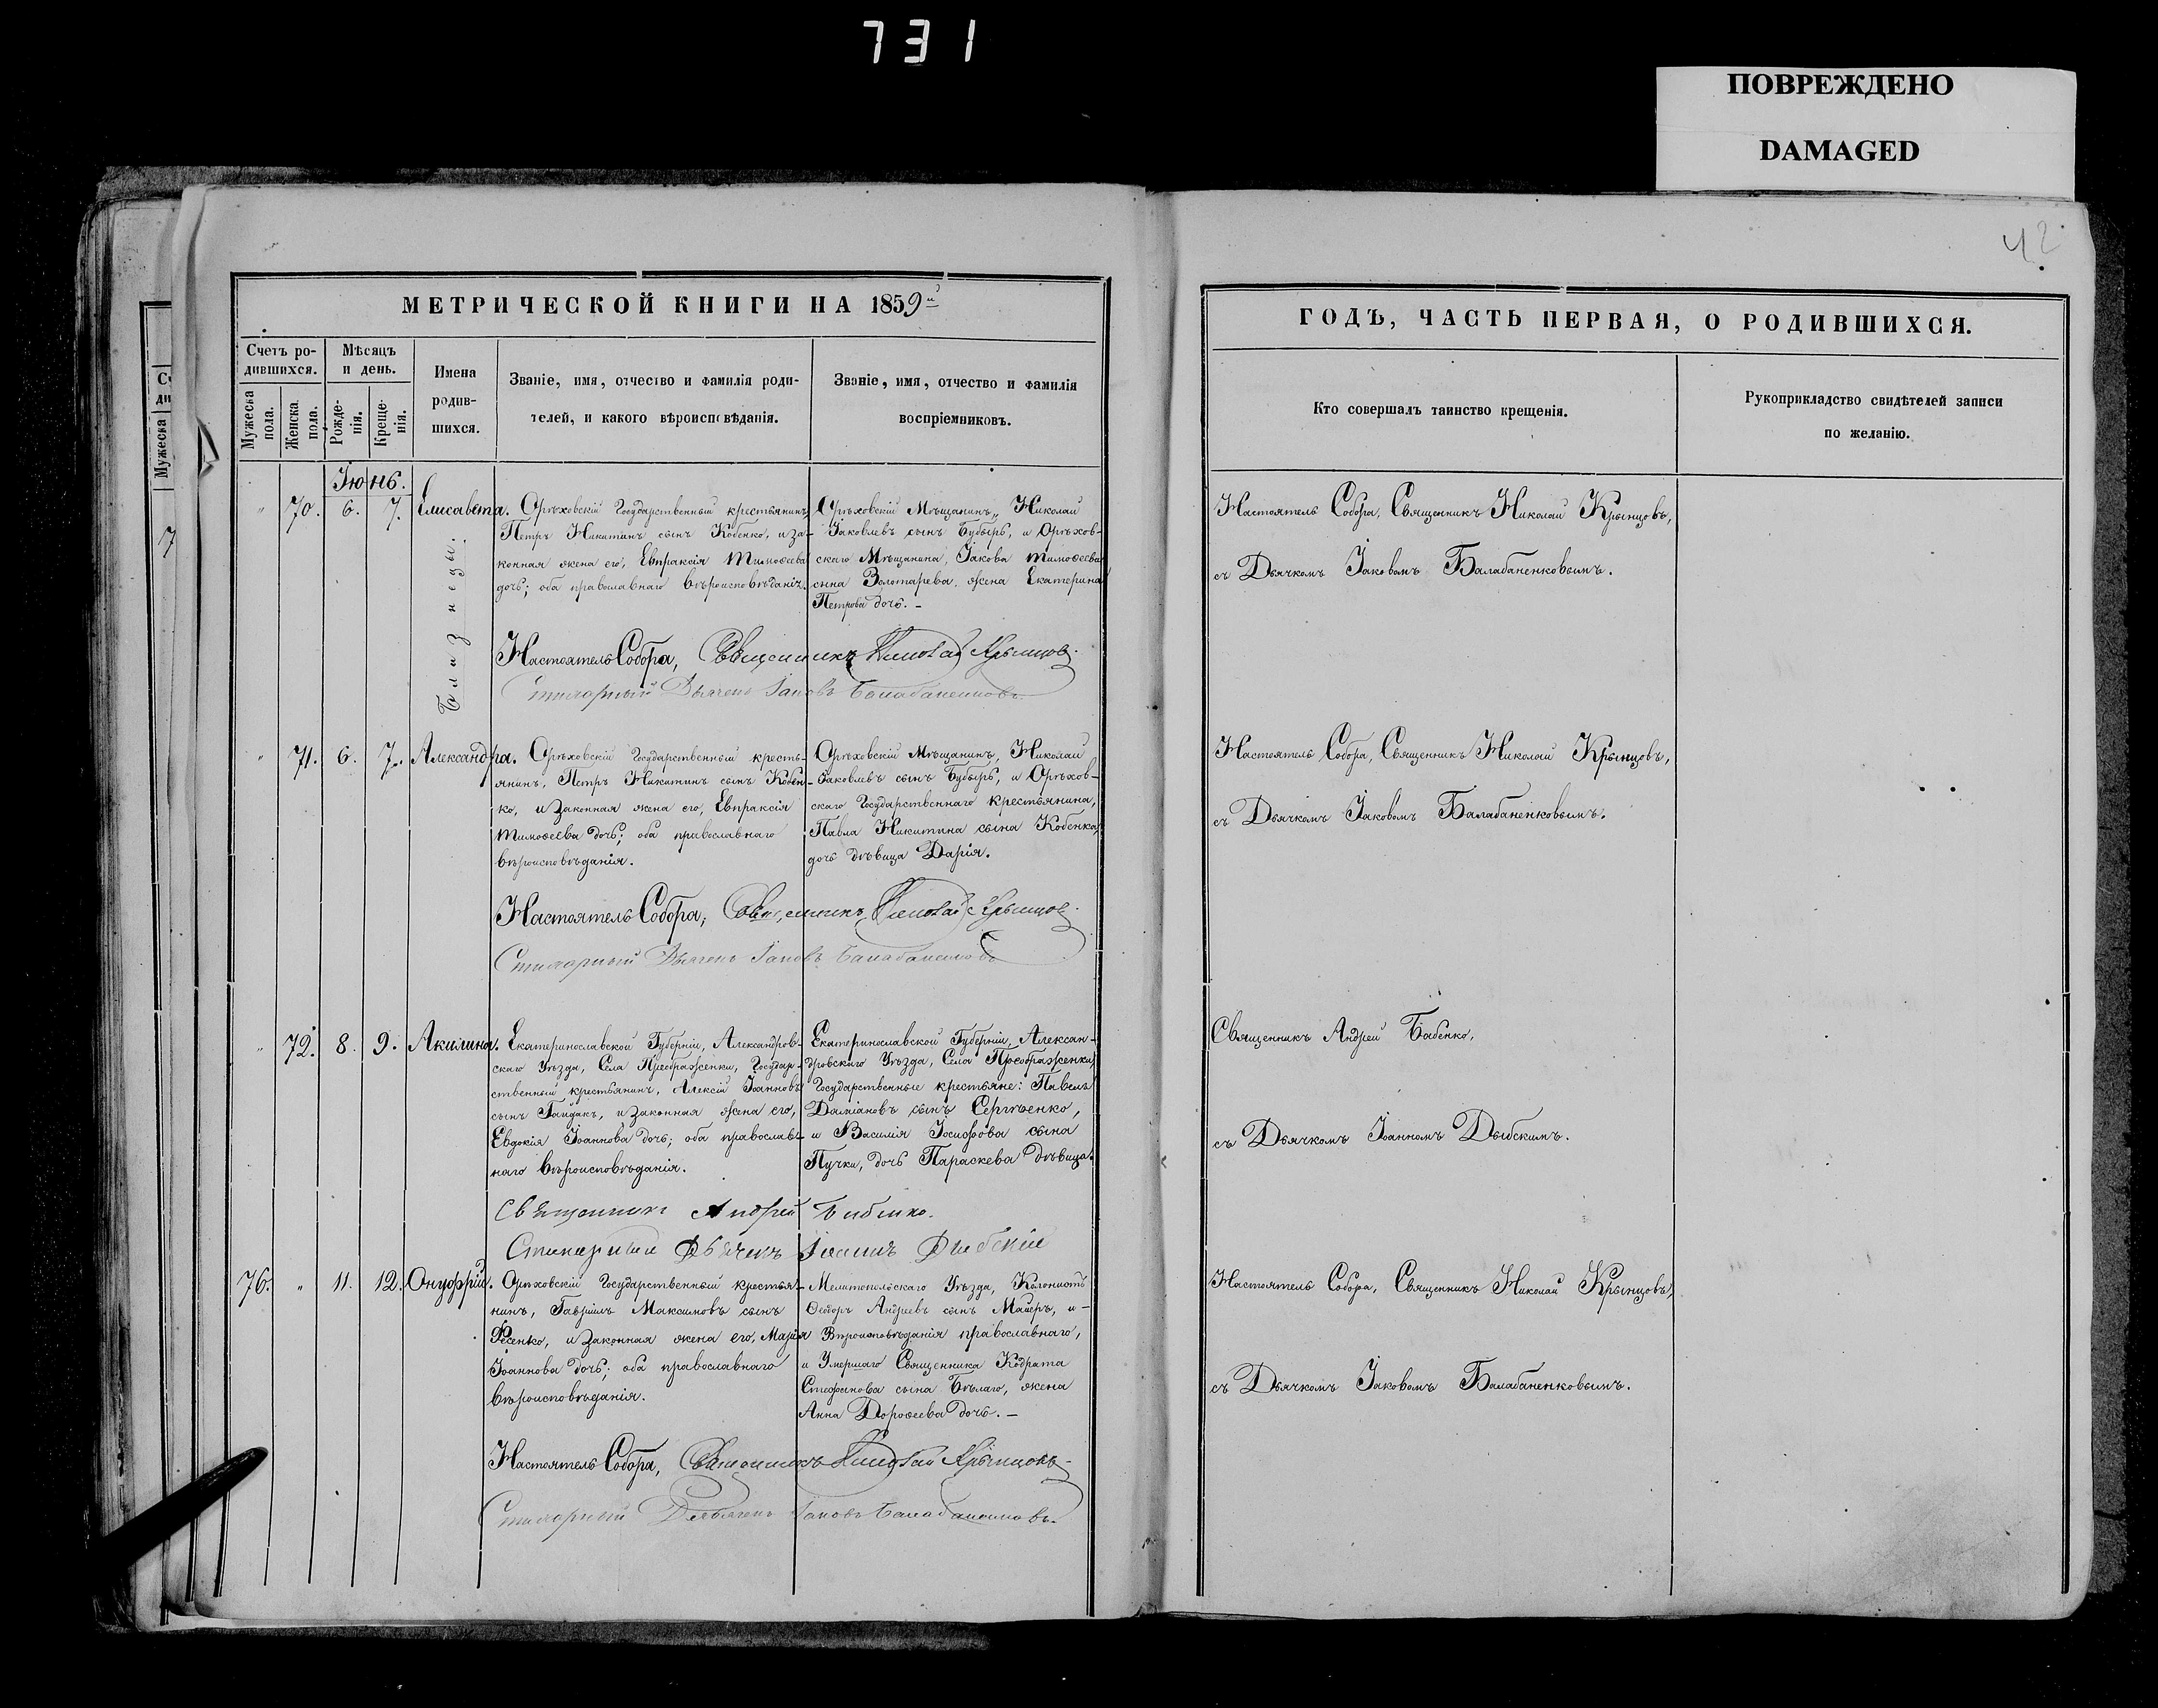 731
ПОВРЕЖДЕНО
DAMAGED
42
МЕТРИЧЕСКОЙ КНИГИ НА 1859й
Счетъ ро-
дившихся.
Мужеска
пола.
Женска
пола.
Мѣсяцъ
и день.
Рожде-
нія.
Креще-
нія.
Имена
родив-
шихся.
Званіе, имя, отчество и фамилія роди-
телей, и какого вѣроисповѣданія.
Званіе, имя, отчество и фамилія
воспріемниковъ.
Іюнь.
" 70. 6. 7. Елисавета.
Близнецы.
Орѣховскій Государственный крестьянинъ
Петръ Никитинъ сынъ Кобенко, и за-
конная жена его, Евпраксія Тимоѳеева
дочь; оба православнаго вѣроисповѣданія.
Орѣховскій Мѣщанинъ, Николай
Іаковлевъ сынъ Бубырь, и Орѣхов-
скаго Мѣщанина, Іакова Тимоѳеева
сына Золотарева, жена Екатерина
Петрова дочь. -
Настоятель Собора, Священникъ Николай Крынцовъ.
Стихарный Дьячекъ Іаковъ Балабаненковъ
" 71. 6. 7. Александра.
Орѣховскій Государственный кресть-
янинъ, Петръ Никитинъ сынъ Кобен-
ко, и законная жена его, Евпраксія
Тимоѳеева дочь; оба православнаго
вѣроисповѣданія.
Орѣховскій Мѣщанинъ, Николай
Іаковлевъ сынъ Бубырь, и Орѣхов-
скаго Государственнаго крестьянина,
Павла Никитина сына Кобенка,
дочь дѣвица Дарія.
Настоятель Собора, Священникъ Николай Крынцовъ.
Стихарный Дьячекъ Іаковъ Балабаненковъ
" 72. 8. 9. Акилина.
Екатеринославской Губерніи, Александров-
скаго Уѣзда, Села Преображенки, Государ-
ственный крестьянинъ, Алексій Іоанновъ
сынъ Гайдакъ, и законная жена его,
Евдокія Іоаннова дочь; оба православ-
наго вѣроисповѣданія.
Екатеринославской Губерніи, Алексан-
дровскаго Уѣзда, Села Преображенки,
Государственные крестьяне: Павелъ
Даміановъ сынъ Сергѣенко,
и Василія Іосифова сына
Пучки, дочь Параскева дѣвица.
Священникъ Андрей Бабенко.
Стихарный Дьячекъ Іоаннъ Дыбскій
76. " 11. 12. Онуфрій.
Орѣховскій Государственный крестья-
нинъ, Гавріилъ Максимовъ сынъ
Фесенко, и законная жена его, Марія
Іоаннова дочь; оба православнаго
вѣроисповѣданія.
Мелитопольскаго Уѣзда, Колонистъ
Ѳедоръ Андреевъ сынъ Майеръ, и -
Вѣроисповѣданія православнаго,
и Умершаго Священника Кодрата
Стефанова сына Бѣлаго, жена
Анна Дороѳеева дочь. -
Настоятель Собора, Священникъ Николай Крынцовъ
Стихарный Дьячекъ Іаковъ Балабаненковъ.
ГОДЪ, ЧАСТЬ ПЕРВАЯ, О РОДИВШИХСЯ.
Кто совершалъ таинство крещенія.
Рукоприкладство свидѣтелей записи
по желанію.
Настоятель Собора, Священникъ Николай Крынцовъ,
съ Дьячкомъ Іаковомъ Балабаненковымъ.
Настоятель Собора, Священникъ Николай Крынцовъ,
съ Дьячкомъ Іаковомъ Балабаненковымъ.
Священникъ Андрей Бабенко,
съ Дьячкомъ Іоанномъ Дыбскимъ.
Настоятель Собора, Священникъ Николай Крынцовъ,
съ Дьячкомъ Іаковомъ Балабаненковымъ.